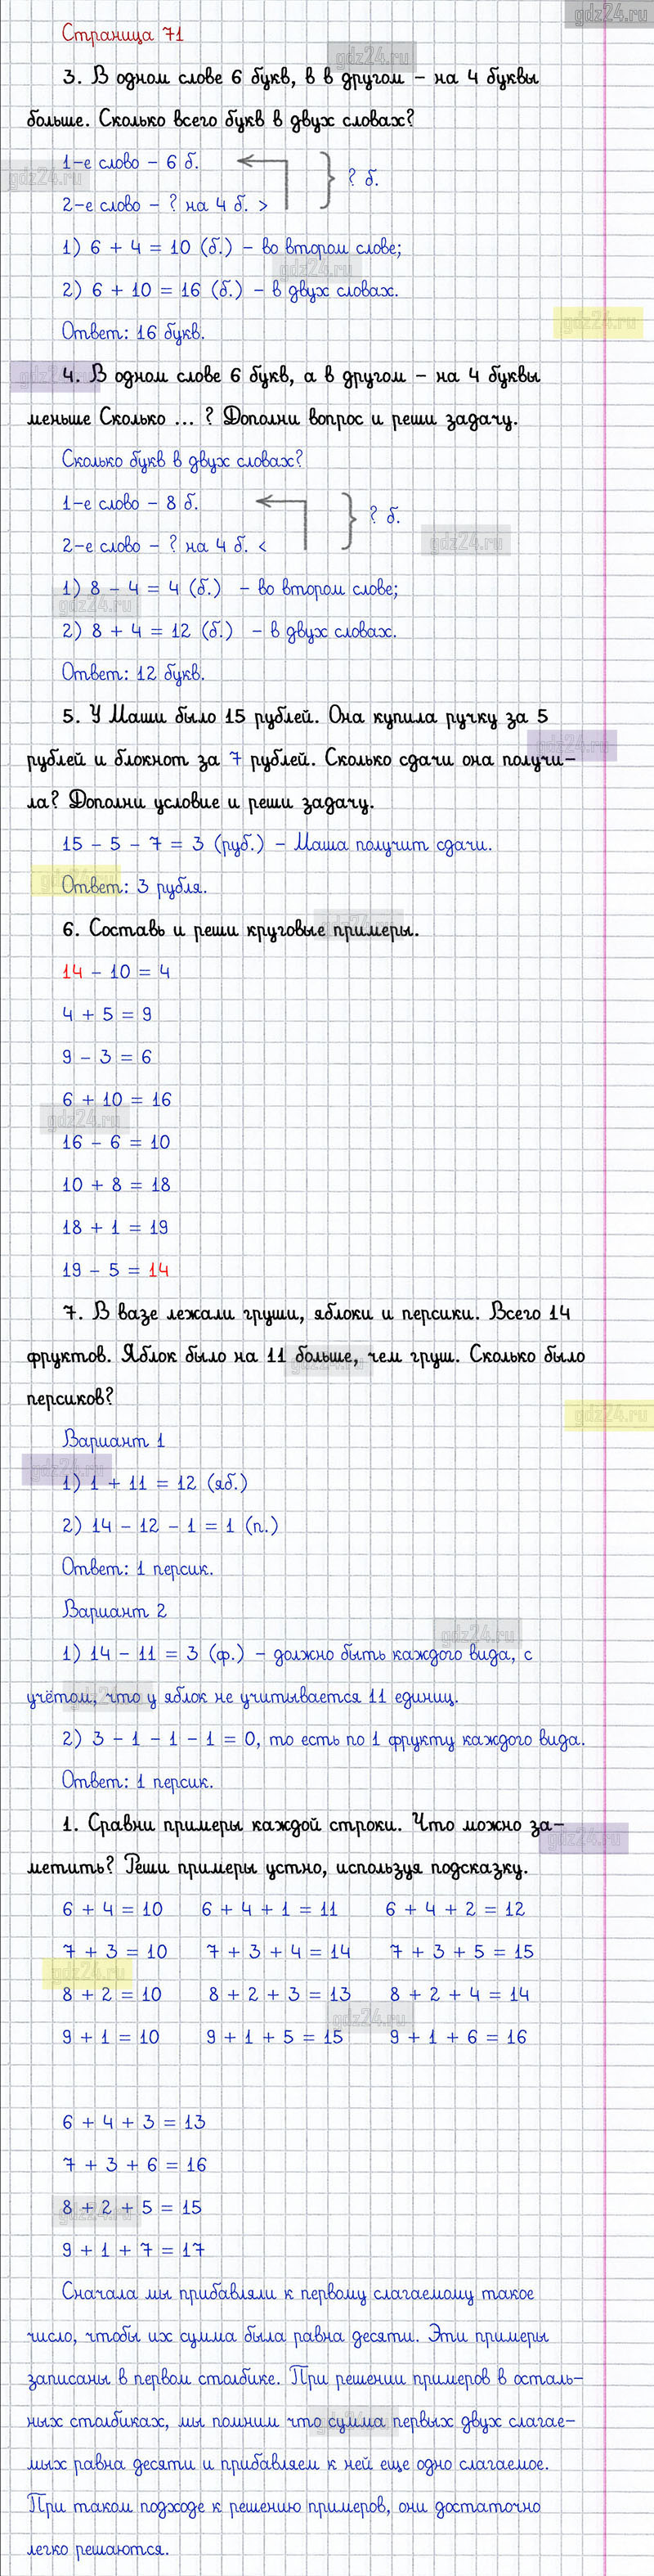 gdz24.ru
Страница 71
3. В одном слове 6 букв, в в другом – на 4 буквы
больше. Сколько всего букв в двух словах?
1-е слово – 6 б.
? б.
2-е слово – ? на 4 б. >
1) 6 + 4 = 10 (б.) – во втором слове;
2) 6 + 10 = 16 (б.) – в двух словах.
Ответ: 16 букв.
4. В одном слове 6 букв, а в другом – на 4 буквы
меньше Сколько ... ? Дополни вопрос и реши задачу.
Сколько букв в двух словах?
1-е слово – 8 б.
? б.
2-е слово – ? на 4 б. <
1) 8 – 4 = 4 (б.) – во втором слове;
2) 8 + 4 = 12 (б.) – в двух словах.
Ответ: 12 букв.
5. У Маши было 15 рублей. Она купила ручку за 5
рублей и блокнот за 7 рублей. Сколько сдачи она получи-
ла? Дополни условие и реши задачу.
15 – 5 – 7 = 3 (руб.) – Маша получит сдачи.
Ответ: 3 рубля.
6. Составь и реши круговые примеры.
14 – 10 = 4
4 + 5 = 9
9 – 3 = 6
6 + 10 = 16
16 – 6 = 10
10 + 8 = 18
18 + 1 = 19
19 – 5 = 14
7. В вазе лежали груши, яблоки и персики. Всего 14
фруктов. Яблок было на 11 больше, чем груш. Сколько было
персиков?
Вариант 1
1) 1 + 11 = 12 (яб.)
2) 14 – 12 – 1 = 1 (п.)
Ответ: 1 персик.
Вариант 2
1) 14 – 11 = 3 (ф.) – должно быть каждого вида, с
учётом, что у яблок не учитывается 11 единиц.
2) 3 – 1 – 1 – 1 = 0, то есть по 1 фрукту каждого вида.
Ответ: 1 персик.
1. Сравни примеры каждой строки. Что можно за-
метить? Реши примеры устно, используя подсказку.
6 + 4 = 10 6 + 4 + 1 = 11 6 + 4 + 2 = 12
7 + 3 = 10 7 + 3 + 4 = 14 7 + 3 + 5 = 15
8 + 2 = 10 8 + 2 + 3 = 13 8 + 2 + 4 = 14
9 + 1 = 10 9 + 1 + 5 = 15 9 + 1 + 6 = 16
6 + 4 + 3 = 13
7 + 3 + 6 = 16
8 + 2 + 5 = 15
9 + 1 + 7 = 17
Сначала мы прибавляли к первому слагаемому такое
число, чтобы их сумма была равна десяти. Эти примеры
записаны в первом столбике. При решении примеров в осталь-
ных столбиках, мы помним что сумма первых двух слагае-
мых равна десяти и прибавляем к ней еще одно слагаемое.
При таком подходе к решению примеров, они достаточно
легко решаются.